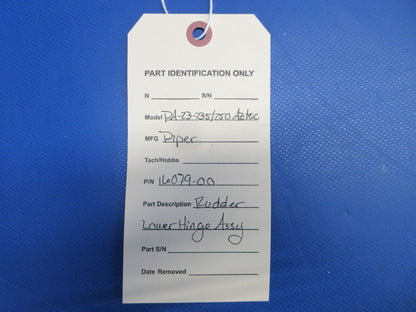 PART IDENTIFICATION ONLY
N S/N
Model PA-23-235/250 Aztec
MFG Piper
Tach/Hobbs
P/N 16079-00
Part Description Rudder
Lower Hinge Assy
Part S/N
Date Removed